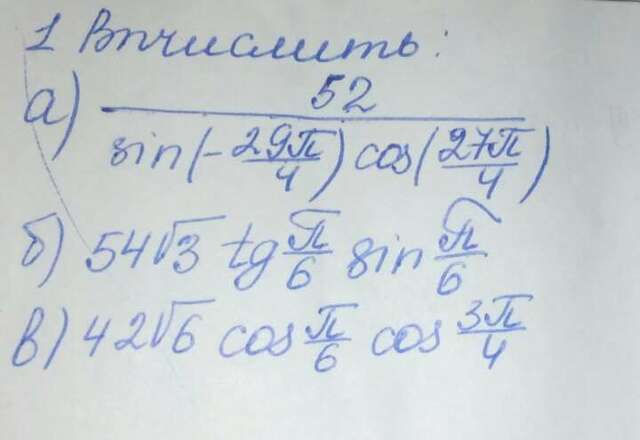 1 Вычислить:
а) 52 / sin(-29π/4) cos(27π/4)
б) 54√3 tg π/6 sin π/6
в) 42√6 cos π/6 cos 3π/4